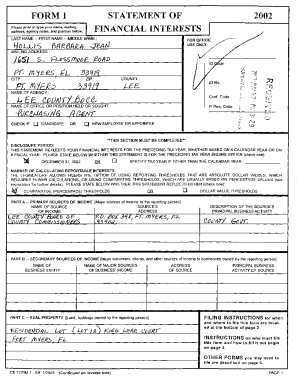 FORM 1 STATEMENT OF 2002
FINANCIAL INTERESTS
Please print or type your name, mailing
address, agency name, and position below:
LAST NAME - FIRST NAME - MIDDLE NAME:
HOLLIS BARBARA JEAN
MAILING ADDRESS:
1651 S. FLOSSMOOR ROAD
FT. MYERS, FL 33919
CITY: ZIP: COUNTY:
FT. MYERS 33919 LEE
NAME OF AGENCY:
LEE COUNTY BOCC
NAME OF OFFICE OR POSITION HELD OR SOUGHT:
PURCHASING AGENT
CHECK IF CANDIDATE OR NEW EMPLOYEE OR APPOINTEE
FOR OFFICE
USE ONLY:
ID Code
ID No.
Conf. Code
P. Req. Code
**THIS SECTION MUST BE COMPLETED**
DISCLOSURE PERIOD:
THIS STATEMENT REFLECTS YOUR FINANCIAL INTERESTS FOR THE PRECEDING TAX YEAR, WHETHER BASED ON A CALENDAR YEAR OR ON
A FISCAL YEAR. PLEASE STATE BELOW WHETHER THIS STATEMENT IS FOR THE PRECEDING TAX YEAR ENDING EITHER (check one):
DECEMBER 31, 2002 OR SPECIFY TAX YEAR IF OTHER THAN THE CALENDAR YEAR:
MANNER OF CALCULATING REPORTABLE INTERESTS:
COMPARATIVE (PERCENTAGE) THRESHOLDS OR DOLLAR VALUE THRESHOLDS
PART A - PRIMARY SOURCES OF INCOME [Major sources of income to the reporting person]
NAME OF SOURCE OF INCOME SOURCE'S ADDRESS DESCRIPTION OF THE SOURCE'S PRINCIPAL BUSINESS ACTIVITY
LEE COUNTY BOARD OF P.O. BOX 398, FT. MYERS, FL COUNTY GOVT.
COUNTY COMMISSIONERS 33902
PART B - SECONDARY SOURCES OF INCOME [Major customers, clients, and other sources of income to businesses owned by the reporting person]
NAME OF BUSINESS ENTITY NAME OF MAJOR SOURCES OF BUSINESS' INCOME ADDRESS OF SOURCE PRINCIPAL BUSINESS ACTIVITY OF SOURCE
PART C - REAL PROPERTY [Land, buildings owned by the reporting person]
RESIDENTIAL LOT (LOT 12) KING LEAR COURT
FORT MYERS, FL
FILING INSTRUCTIONS for when
and where to file this form are located
at the bottom of page 2.
INSTRUCTIONS on who must file
this form and how to fill it out begin
on page 3.
OTHER FORMS you may need to
file are described on page 6.
CE FORM 1 - Eff. 1/2003 (Continued on reverse side) PAGE 1